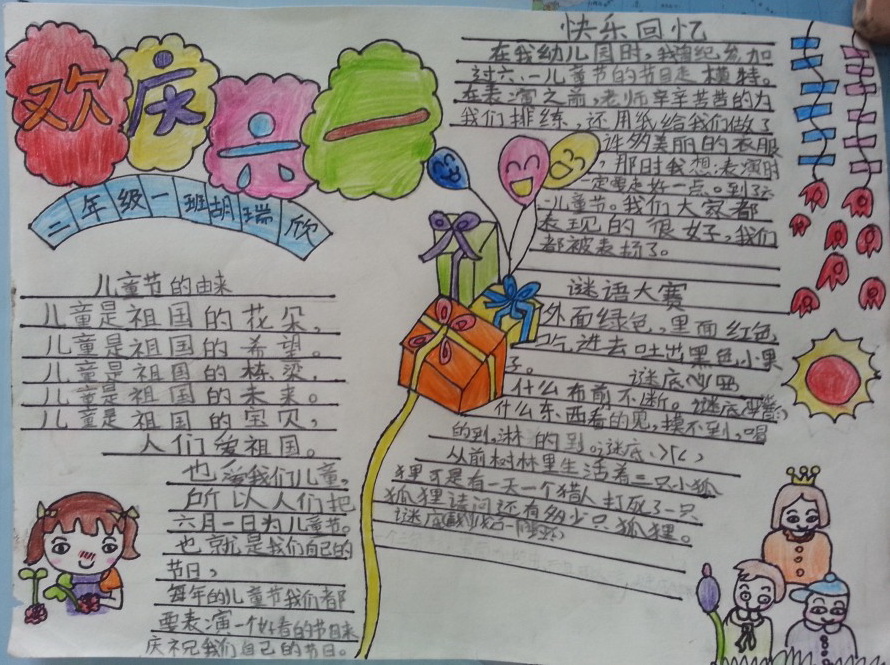 欢庆六一
二年级一班胡瑞欣
儿童节的由来
儿童是祖国的花朵,
儿童是祖国的希望。
儿童是祖国的栋梁,
儿童是祖国的未来。
儿童是祖国的宝贝,
人们爱祖国。
也爱我们儿童。
所以人们把
六月一日为儿童节。
也就是我们自己的
节日,
每年的儿童节我们者都
要表演一个好看的节目来
庆祝我们自己的节日。
快乐回忆
在我幼儿园时,我曾经参加
过六、一儿童节的节目走模特。
在表演之前,老师辛辛苦苦的为
我们排练,还用纸给我们做了
许多美丽的衣服
,那时我想:表演时
一定要走好一点。到了六
一儿童节。我们大家都
表现的很好,我们
都被表扬了。
谜语大赛
外面绿色,里面红色,
吃进去吐出黑色小果
子。 谜底
什么布前不断。谜底
什么东西看的见,摸不到,喝
的到,淋的到。谜底:水
从前树林里生活着三只小狐
狸可是有一天一个猎人打死了一只
狐狸请问还有多少只狐狸。
谜底